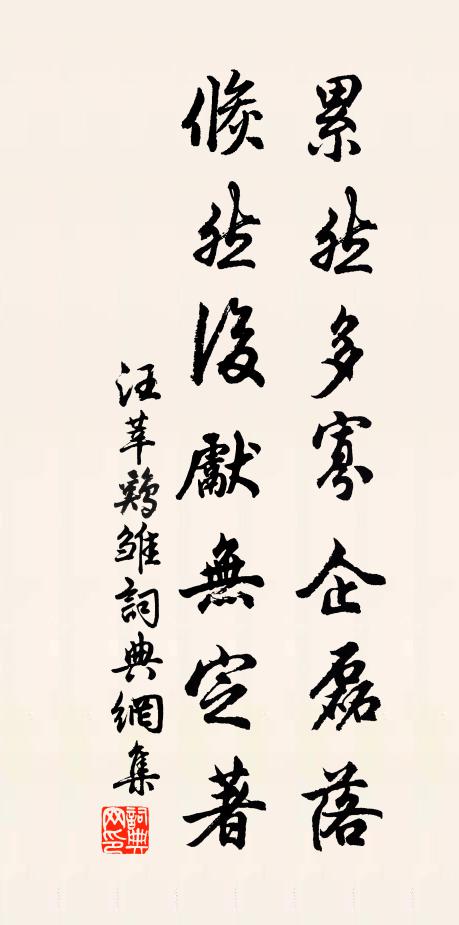 累然多寡企磊落
倏然後獻無定著
汪莘鷄雏詞典網集
詞典網印